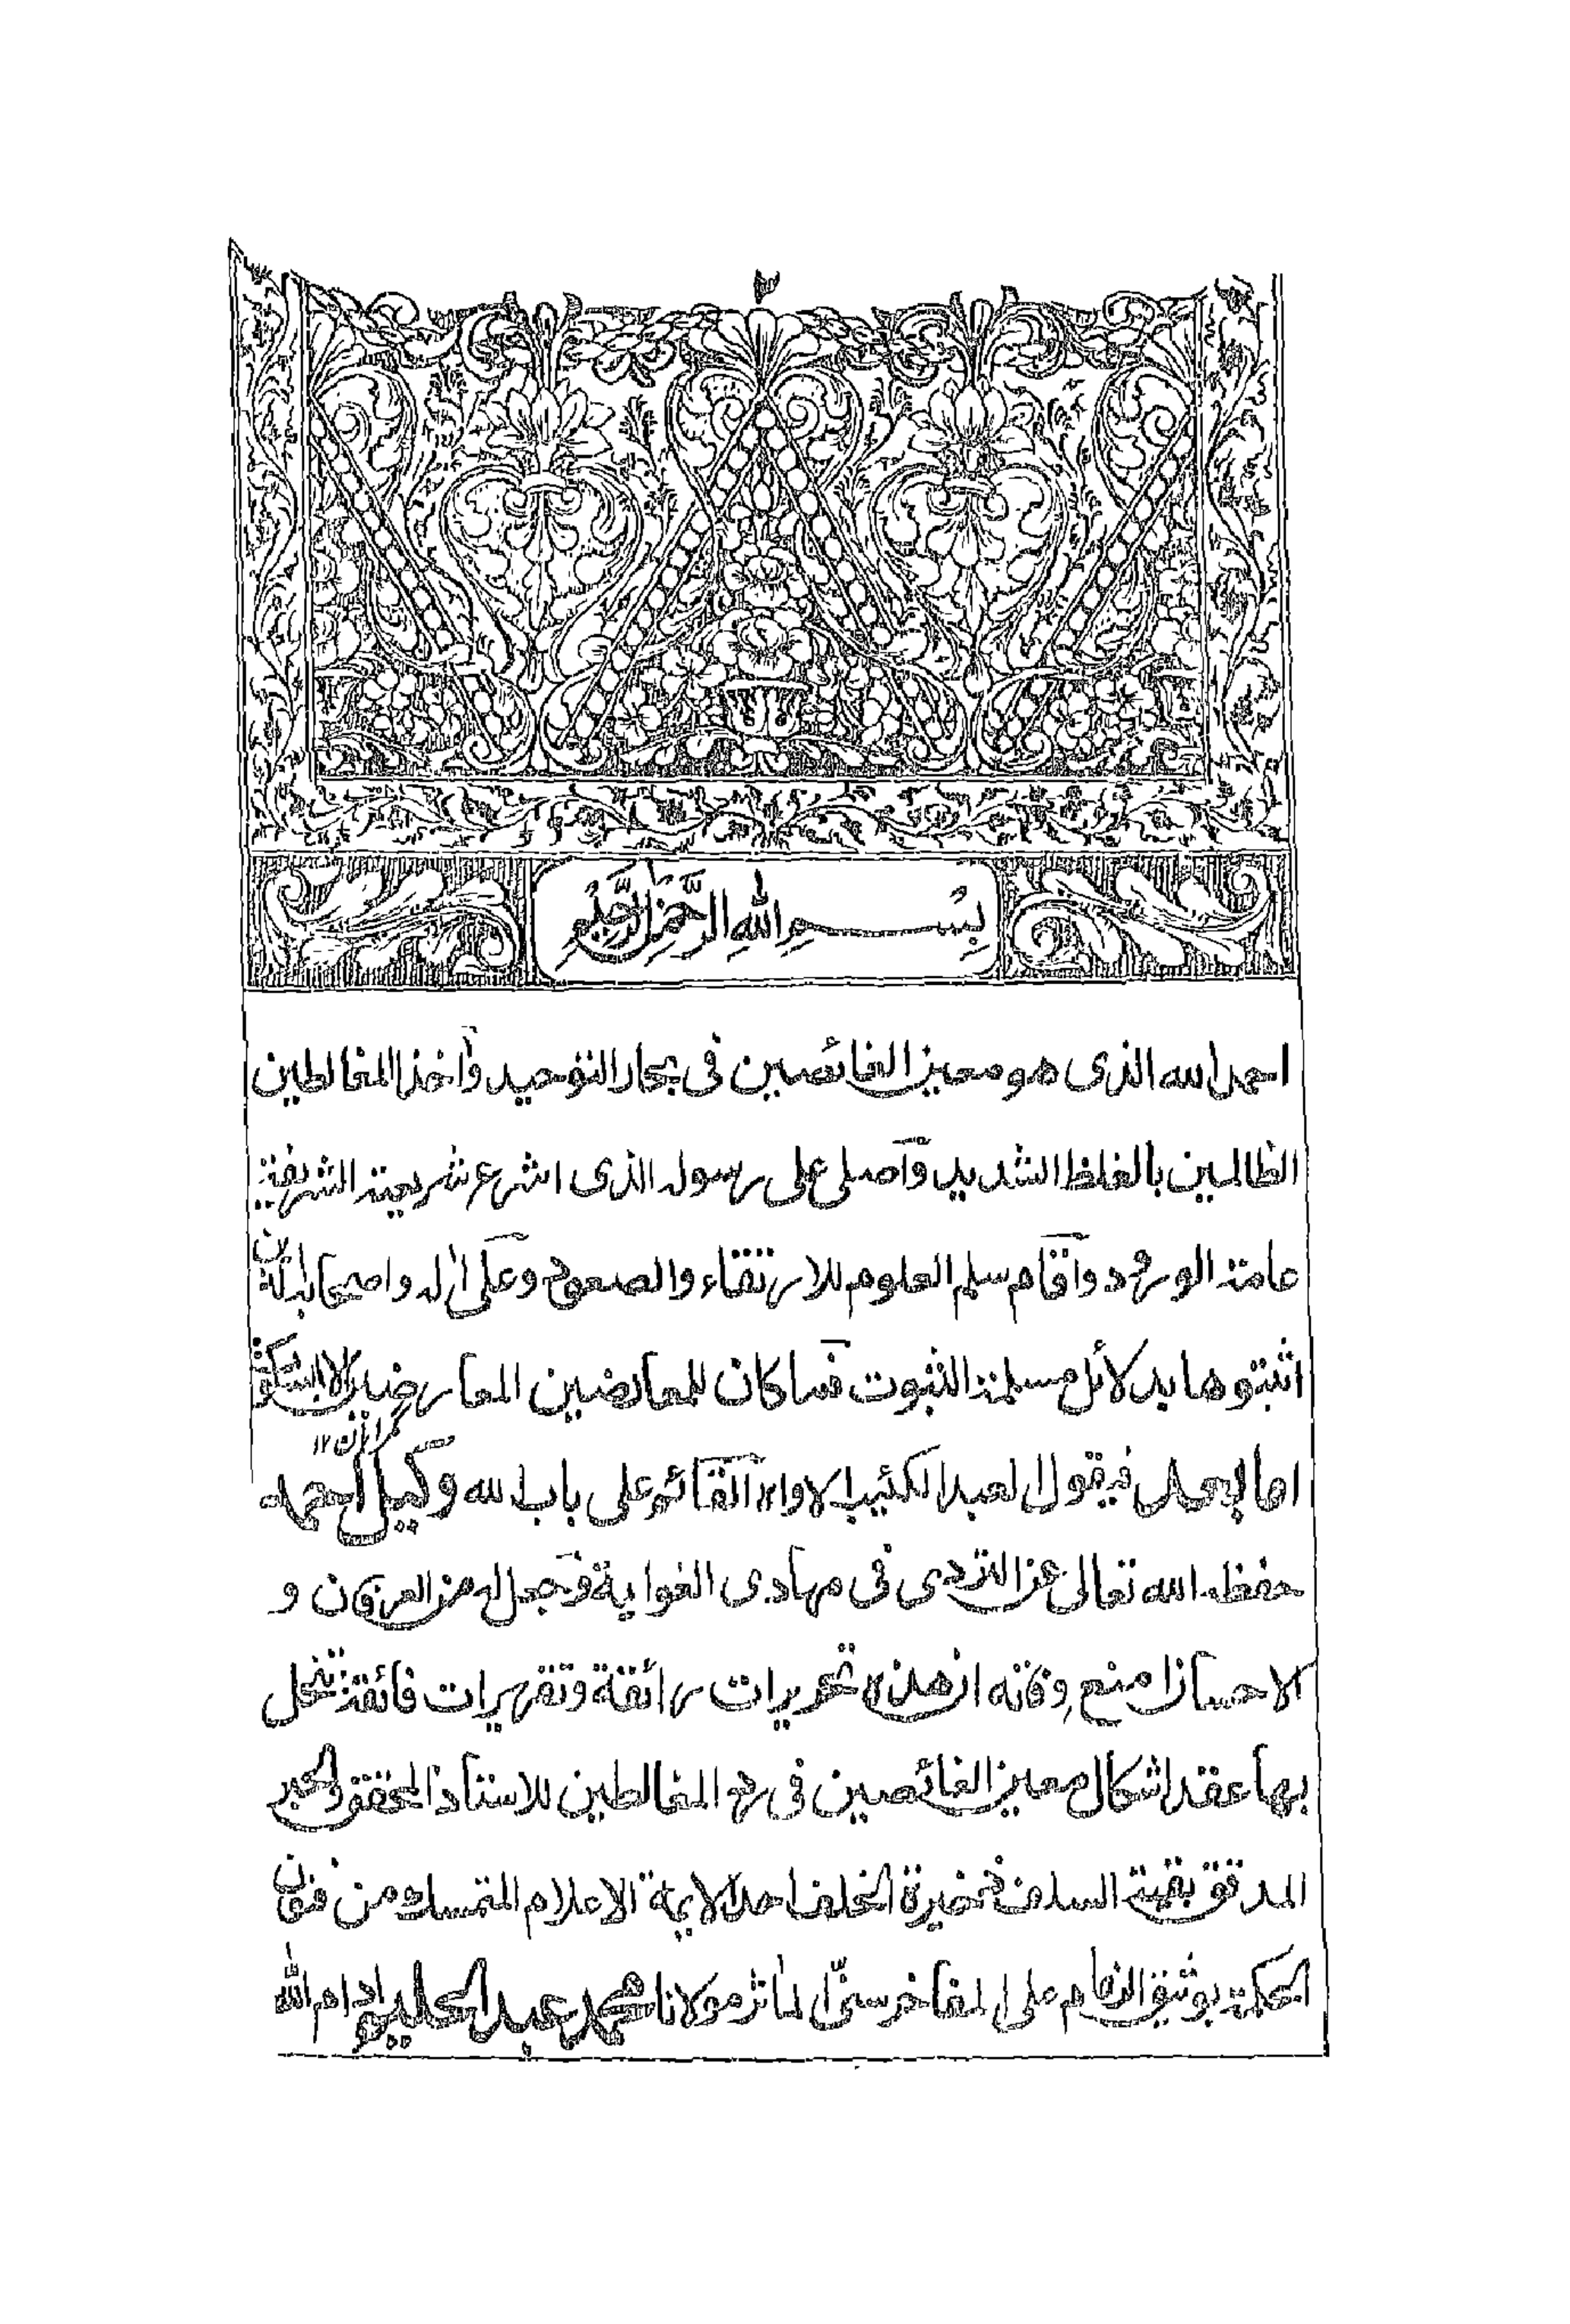 ٢
بِسْــــمِ اللهِ الرَّحْمٰنِ الرَّحِيْمِ
احمد الله الذى هو معين الغائصين فى بحار التوحيد وآخذ المغالطين
الظالمين بالغلظ الشديد وآصلى على رسوله الذى اشرع شريعته الشريفة
عامة الورود وآقام سلم العلوم للارتقاء والصعود وعلى آله واصحابه الذين
اثبتوها بدلائل مسلمة الثبوت فما كان للمعارضين المعارضة الا السكوت
اما بعد فيقول العبد الكئيب الاواه القائم على باب الله وكيل احمد
حفظه الله تعالى عن التردى فى مهادى الغواية وجعل له من العرفان و
الاحسان امنع وقاته ان هذه تحريرات رائقة وتقريرات فائقة تنحل
بها عقد اشكال معين الغائصين فى رد المغالطين للاستاذ المحقق والحبر
المدقق بقية السلف ذخيرة الخلف احد الايمة الاعلام المتمسك من فنون
الحكمة بوثيق الزمام على المفاخر سنىّ المآثر مولانا محمد عبد الحليم ادام الله